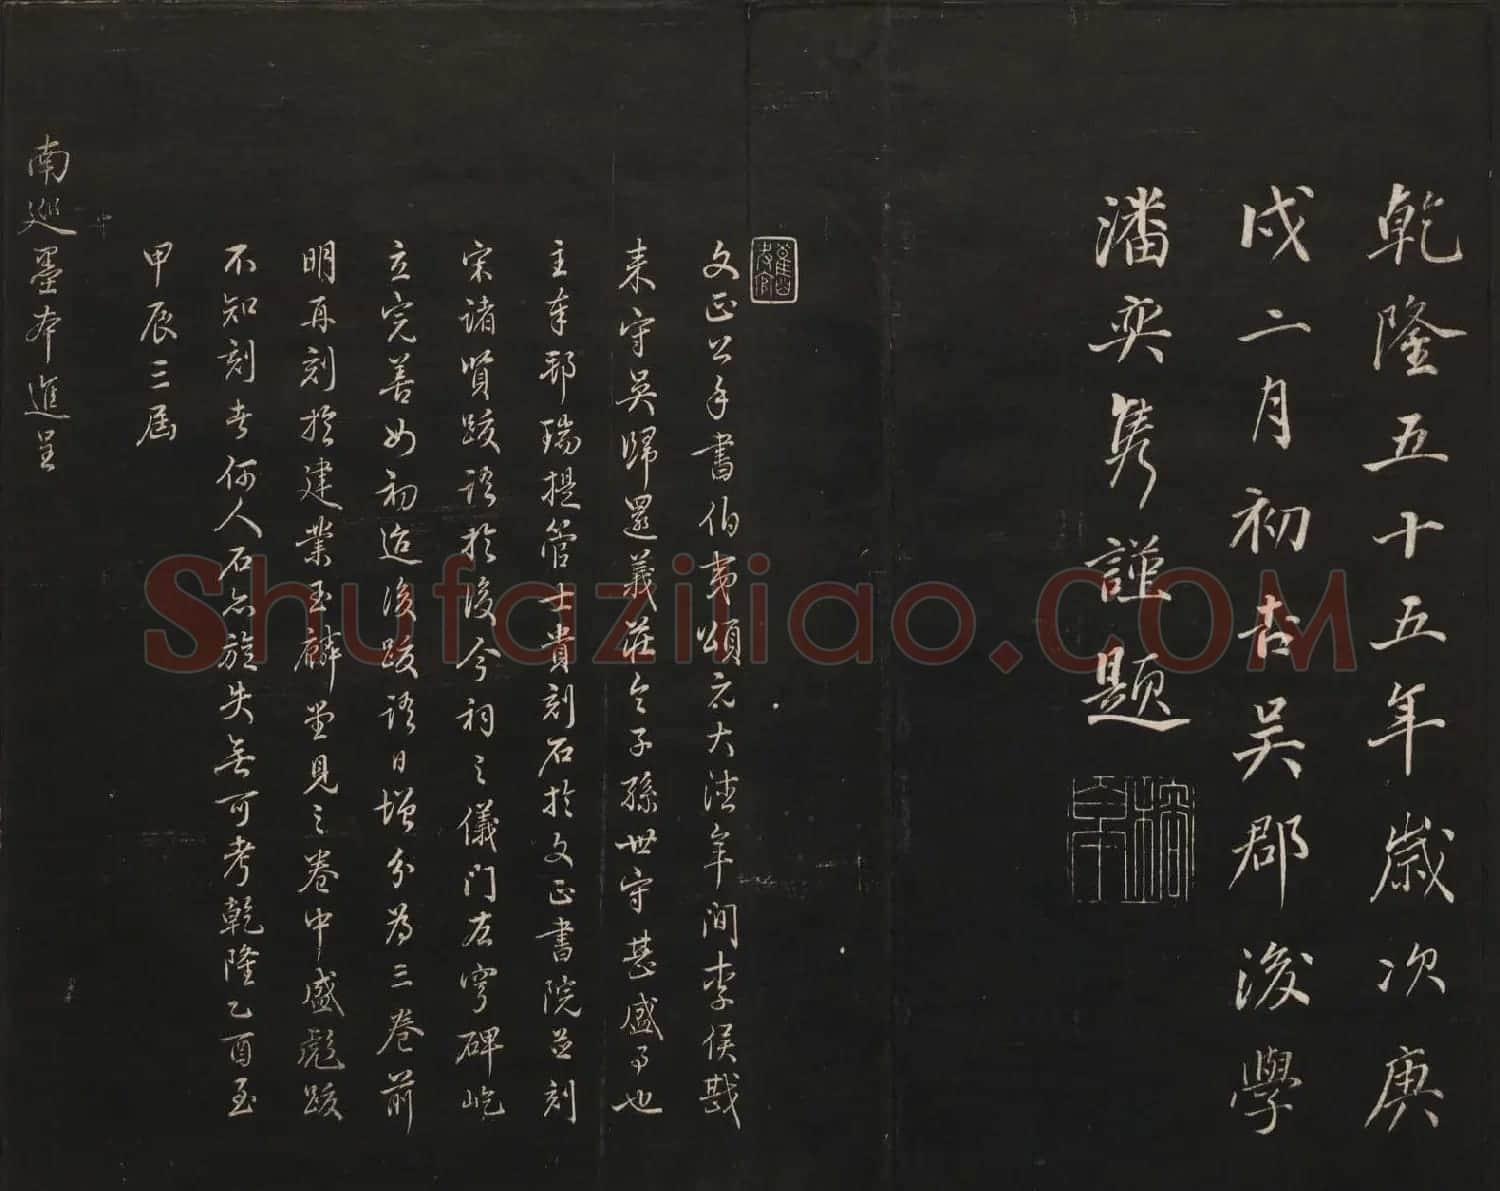 乾隆五十五年歲次庚
戌二月初吉吳郡後學
潘奕雋謹題
文正公手書伯夷頌元大德年間李侯戡
來守吳歸還義莊令子孫世守甚盛事也
主奉邨瑞提管士貴刻石於文正書院並刻
宋諸賢跋語於後今祠之儀門左穹碑屹
立完善如初迨後跋語日增分為三卷前
明再刻於建業玉麟堂見之卷中盛彪跋
不知刻者何人石亦旋失無可考乾隆乙酉至
甲辰三屆
南廵墨本進呈
Shufaziliao.COM